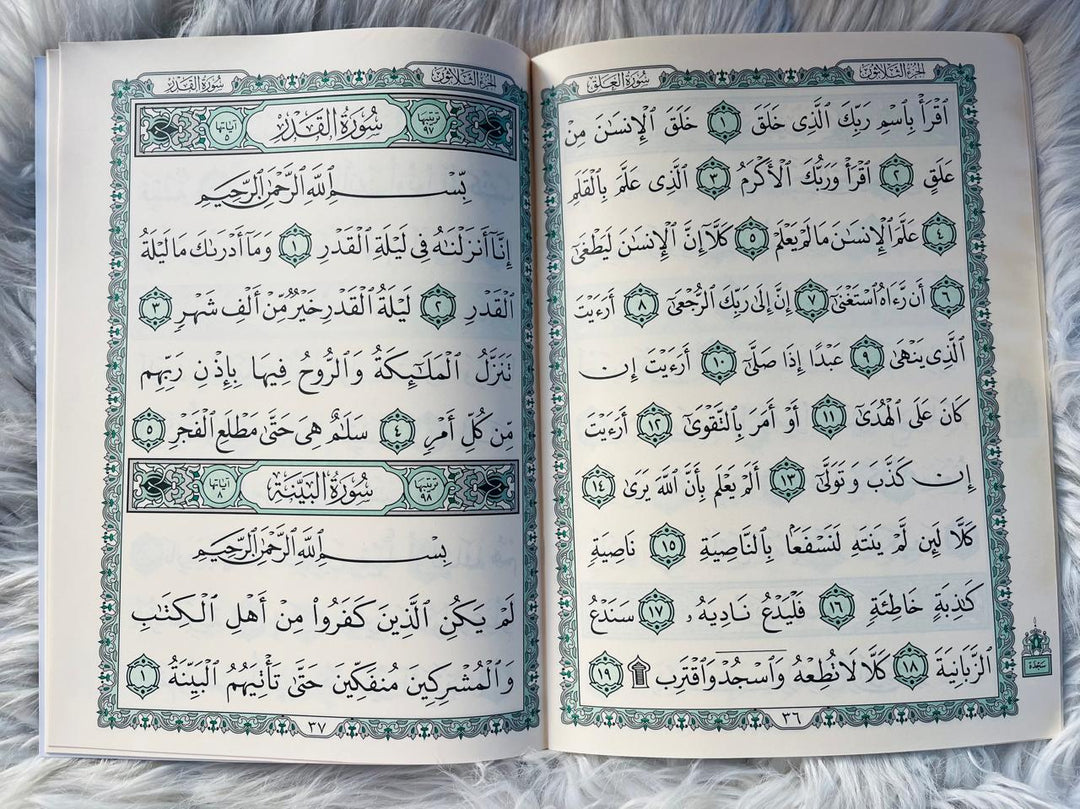 الجزء الثلاثون
سورة العلق
ٱقْرَأْ بِٱسْمِ رَبِّكَ ٱلَّذِى خَلَقَ ١ خَلَقَ ٱلْإِنسَٰنَ مِنْ
عَلَقٍ ٢ ٱقْرَأْ وَرَبُّكَ ٱلْأَكْرَمُ ٣ ٱلَّذِى عَلَّمَ بِٱلْقَلَمِ
٤ عَلَّمَ ٱلْإِنسَٰنَ مَا لَمْ يَعْلَمْ ٥ كَلَّآ إِنَّ ٱلْإِنسَٰنَ لَيَطْغَىٰٓ
٦ أَن رَّءَاهُ ٱسْتَغْنَىٰٓ ٧ إِنَّ إِلَىٰ رَبِّكَ ٱلرُّجْعَىٰٓ ٨ أَرَءَيْتَ
ٱلَّذِى يَنْهَىٰ ٩ عَبْدًا إِذَا صَلَّىٰٓ ١٠ أَرَءَيْتَ إِن
كَانَ عَلَى ٱلْهُدَىٰٓ ١١ أَوْ أَمَرَ بِٱلتَّقْوَىٰٓ ١٢ أَرَءَيْتَ
إِن كَذَّبَ وَتَوَلَّىٰٓ ١٣ أَلَمْ يَعْلَم بِأَنَّ ٱللَّهَ يَرَىٰ ١٤
كَلَّا لَئِن لَّمْ يَنتَهِ لَنَسْفَعًۢا بِٱلنَّاصِيَةِ ١٥ نَاصِيَةٍ
كَٰذِبَةٍ خَاطِئَةٍ ١٦ فَلْيَدْعُ نَادِيَهُۥ ١٧ سَنَدْعُ
ٱلزَّبَانِيَةَ ١٨ كَلَّا لَا تُطِعْهُ وَٱسْجُدْ وَٱقْتَرِب ۩ ١٩
سجدة
٣٦
الجزء الثلاثون
سورة القدر
ترتيبها ٩٧ سُورَةُ القَدْرِ آياتها ٥
بِّسْمِ ٱللَّهِ ٱلرَّحْمَٰنِ ٱلرَّحِيمِ
إِنَّآ أَنزَلْنَٰهُ فِى لَيْلَةِ ٱلْقَدْرِ ١ وَمَآ أَدْرَىٰكَ مَا لَيْلَةُ
ٱلْقَدْرِ ٢ لَيْلَةُ ٱلْقَدْرِ خَيْرٌ مِّنْ أَلْفِ شَهْرٍ ٣
تَنَزَّلُ ٱلْمَلَٰٓئِكَةُ وَٱلرُّوحُ فِيهَا بِإِذْنِ رَبِّهِم
مِّن كُلِّ أَمْرٍ ٤ سَلَٰمٌ هِىَ حَتَّىٰ مَطْلَعِ ٱلْفَجْرِ ٥
ترتيبها ٩٨ سُورَةُ البَيِّنَةِ آياتها ٨
بِسْمِ ٱللَّهِ ٱلرَّحْمَٰنِ ٱلرَّحِيمِ
لَمْ يَكُنِ ٱلَّذِينَ كَفَرُوا۟ مِنْ أَهْلِ ٱلْكِتَٰبِ
وَٱلْمُشْرِكِينَ مُنفَكِّينَ حَتَّىٰ تَأْتِيَهُمُ ٱلْبَيِّنَةُ ١
٣٧